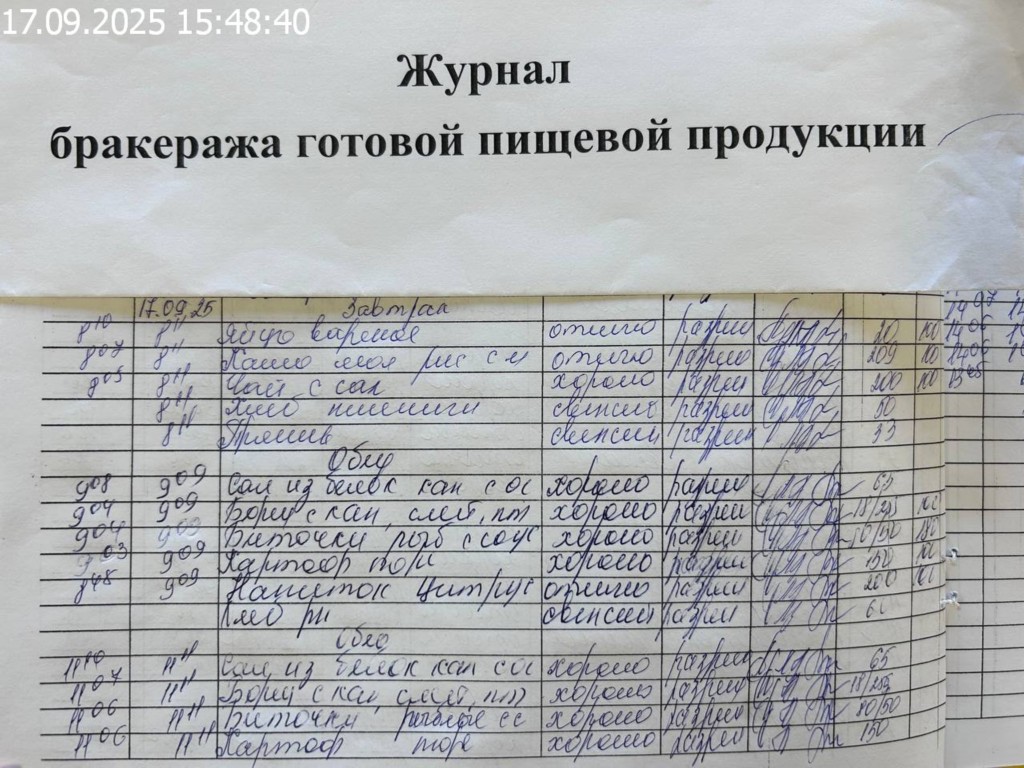 17.09.2025 15:48:40
Журнал
бракеража готовой пищевой продукции
17.09.25 Завтрак
8 10 8 11 Яйцо вареное отлично разреш 100
8 07 8 11 Каша мол рис с м отлично разреш 209 100
8 05 8 11 Чай с сах хорошо разреш 200 100
8 11 Хлеб пшенич разреш 50
8 11 разреш 33
Обед
9 08 9 09 Сал из белок кап с ос хорошо разреш 65
9 04 9 09 Борщ с кап, смет, пт хорошо разреш
9 04 9 09 Биточки рыб с соус хорошо разреш
9 03 9 09 Картоф пюре хорошо разреш 150
8 48 9 09 Напиток Цитрус отлично разреш 200
Хлеб рж разреш
Обед
11 10 11 11 Сал из белок кап с ос хорошо разреш 65
11 07 11 11 Борщ с кап, смет, пт хорошо разреш 18/255
11 06 11 11 Биточки рыбные с с хорошо разреш
11 06 11 11 Картоф пюре хорошо разреш 150